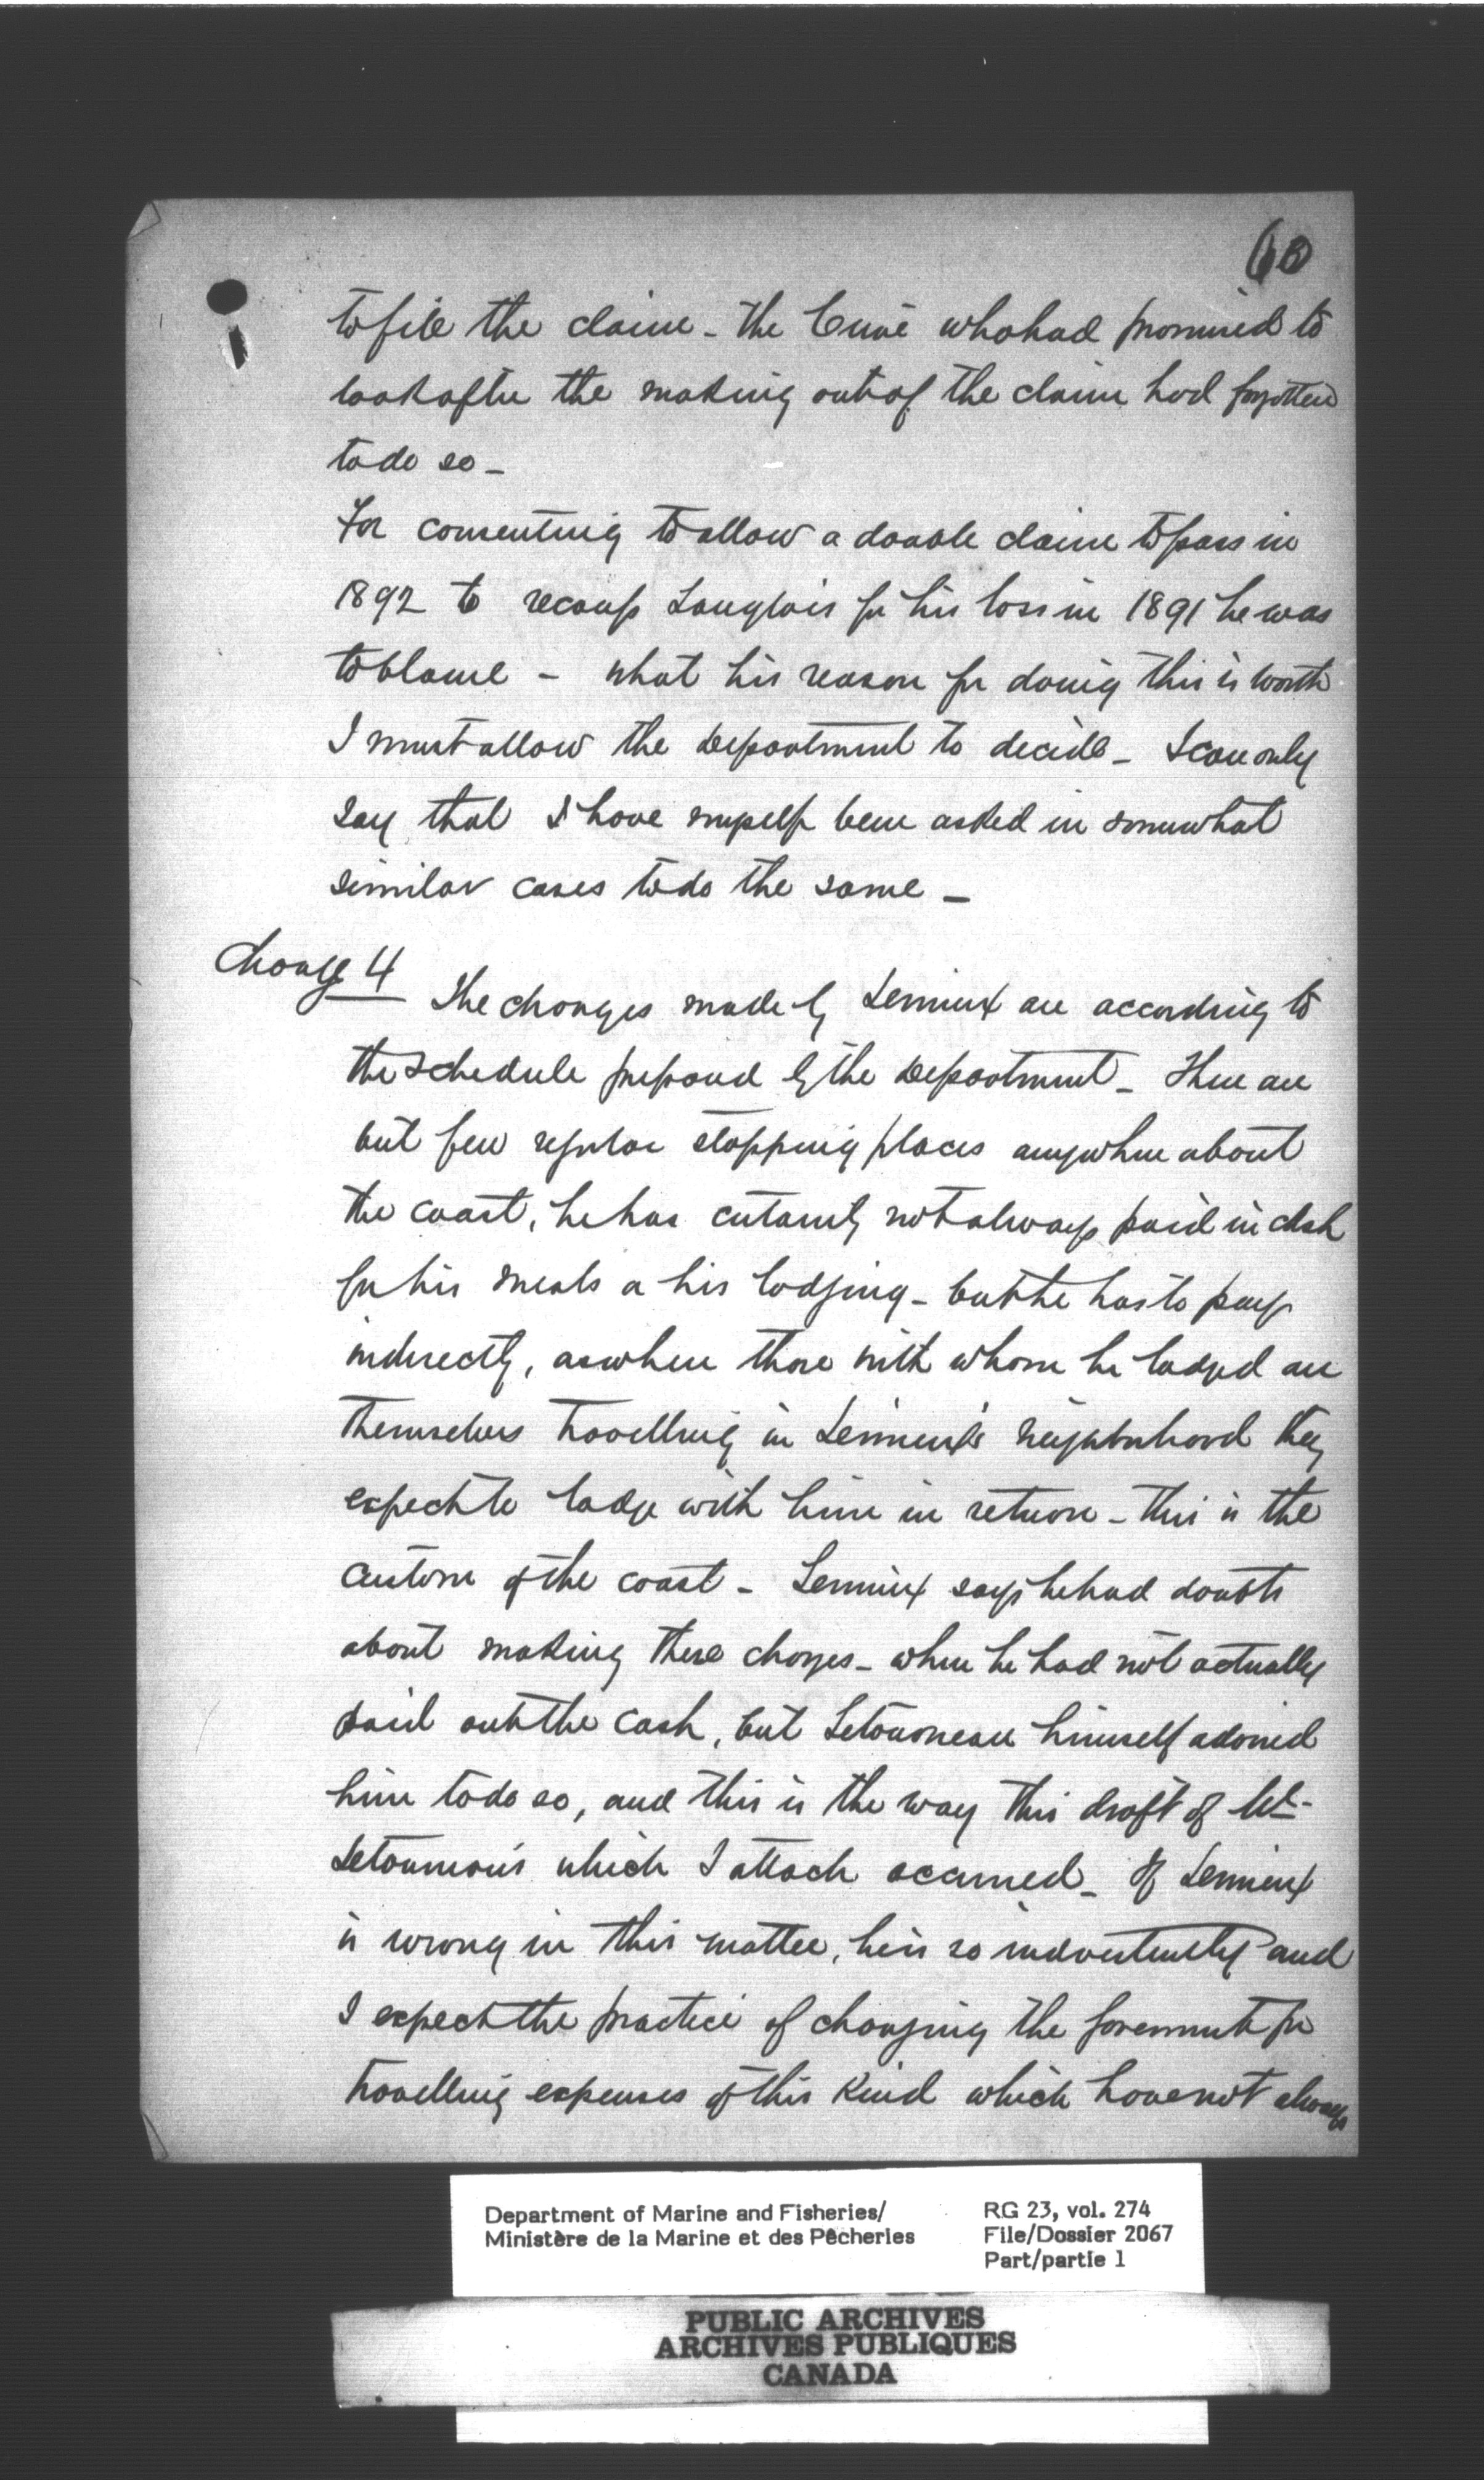 60
to file the claim - the Curé who had promised to
look after the making out of the claim had forgotten
to do so -
For consenting to allow a double claim to pass in
1892 to recoup Langlois for his loss in 1891 he was
to blame - what his reason for doing this is worth
I must allow the department to decide - I can only
say that I have myself been asked in somewhat
similar cases to do the same -
Charge 4
The charges made by Lemieux are according to
the schedule prepared by the Department - There are
but few regular stopping places anywhere about
the coast, he has certainly not always paid in cash
for his meals or his lodging - but he has to pay
indirectly, as when those with whom he lodged are
themselves travelling in Lemieux's neighborhood they
expect to lodge with him in return - this is the
custom of the coast - Lemieux says he had doubts
about making these charges - when he had not actually
paid out the cash, but Letourneau himself advised
him to do so, and this is the way this draft of
Letourneau's which I attach occurred - If Lemieux
is wrong in this matter, he is so inadvertently and
I expect the practice of charging the government for
travelling expenses of this kind which have not always
Department of Marine and Fisheries/
Ministère de la Marine et des Pêcheries
RG 23, vol. 274
File/Dossier 2067
Part/partie 1
PUBLIC ARCHIVES
ARCHIVES PUBLIQUES
CANADA